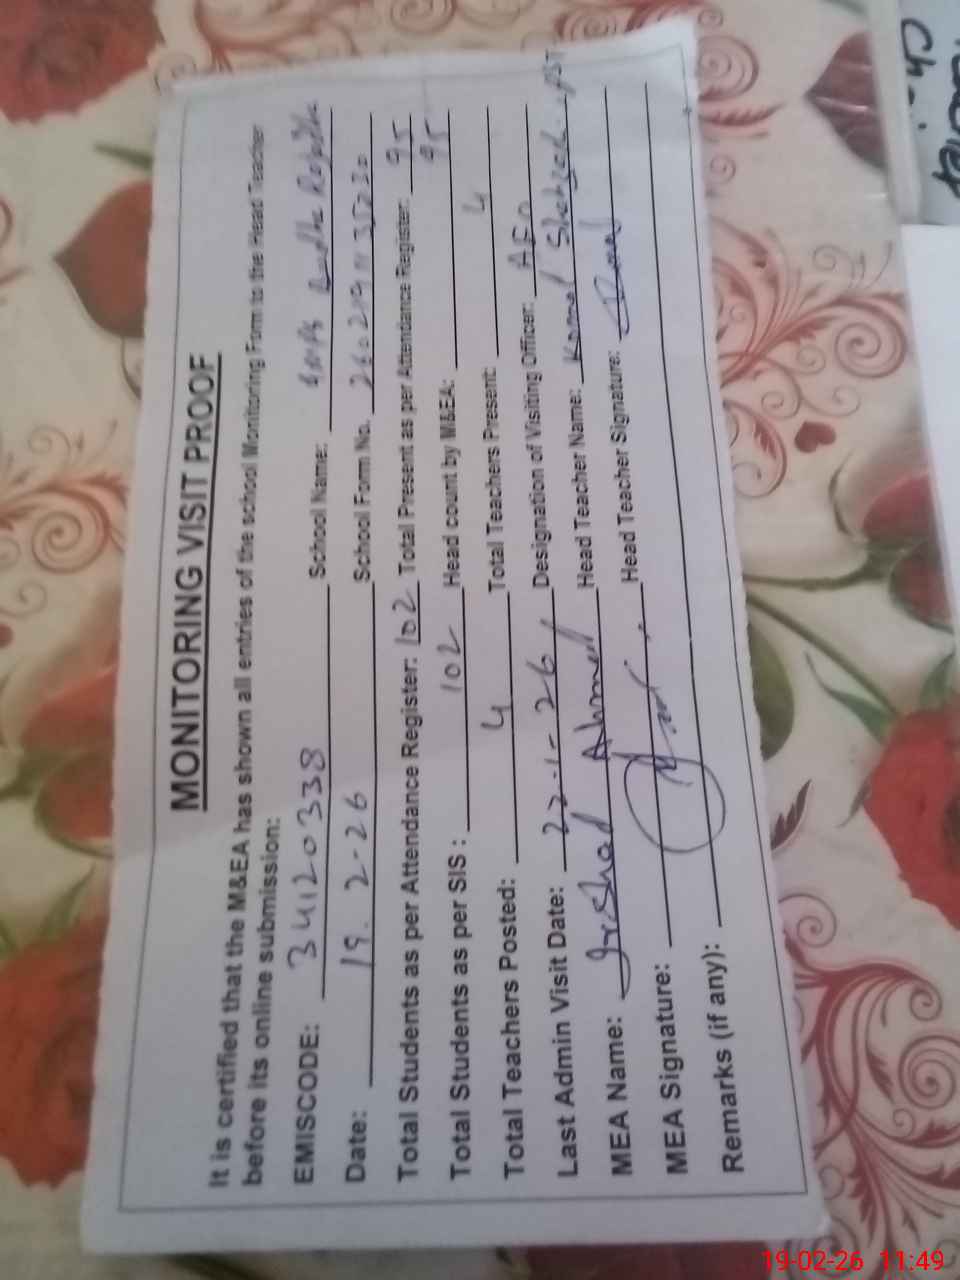 MONITORING VISIT PROOF
It is certified that the M&EA has shown all entries of the school Monitoring Form to the Head Teacher
before its online submission:
EMISCODE: 34120338 School Name:
Date: 19. 2-26 School Form No.
Total Students as per Attendance Register: 102 Total Present as per Attendance Register: 95
Total Students as per SIS : 102 Head count by M&EA: 95
Total Teachers Posted: 4 Total Teachers Present: 4
Last Admin Visit Date: 22-1-26 Designation of Visiting Officer: AEO
MEA Name: Irshad Ahmed Head Teacher Name: Komal Shahzadi PST
MEA Signature: Head Teacher Signature:
Remarks (if any):
19-02-26 11:49